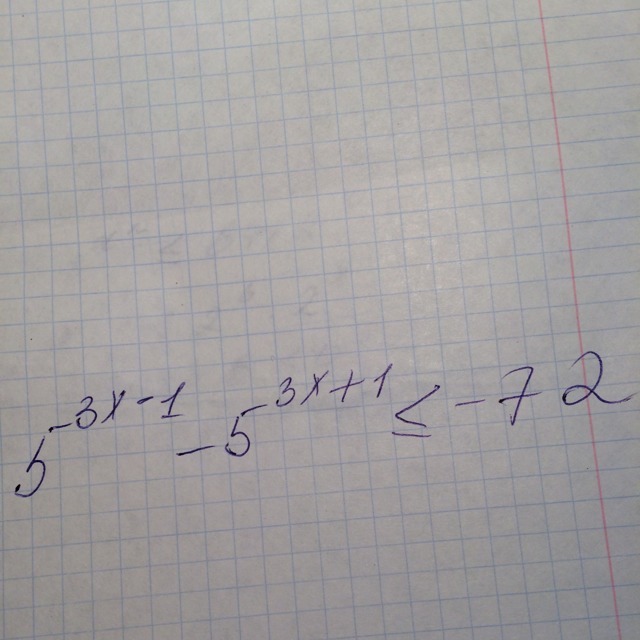 5^{3x-1} - 5^{3x+1} ≤ -72